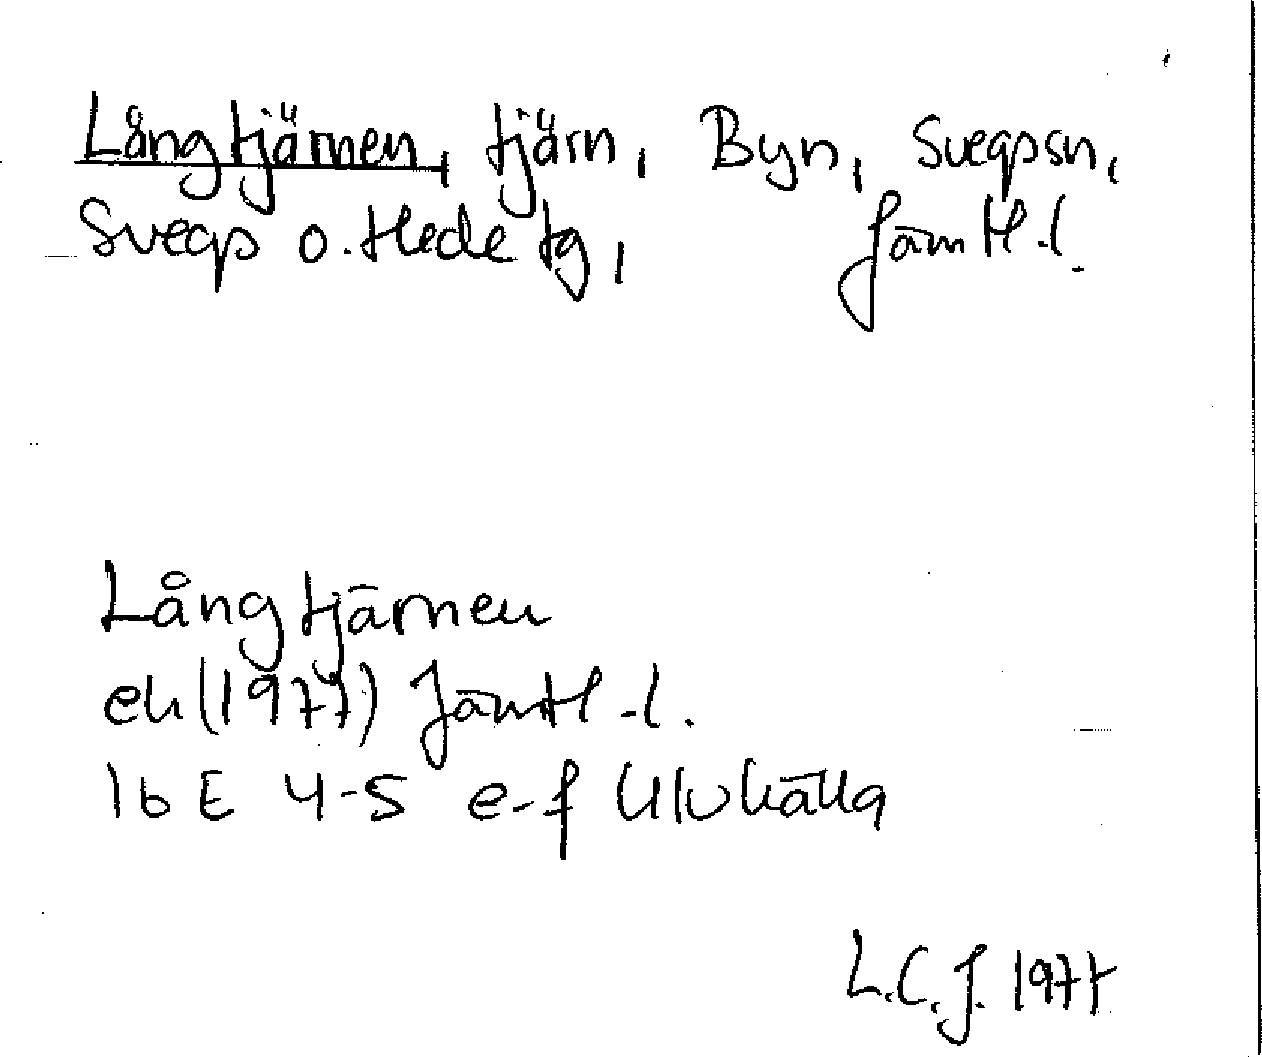 Långtjärnen, tjärn, Byn, Svegs sn,
Svegs o. Hede tg, Jämtl. l.
Långtjärnen
ek (1977) Jämtl. l.
16 E 4-5 e-f Ulvkälla
L.C.J. 1977